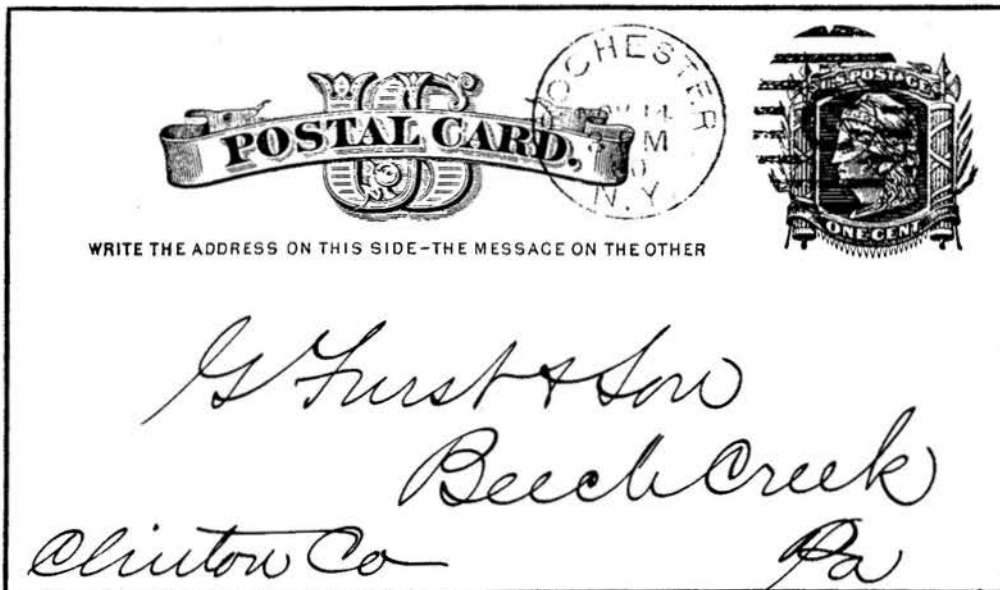 US
POSTAL CARD.
ROCHESTER
14
M
N.Y.
U.S. POSTAGE
ONE CENT
WRITE THE ADDRESS ON THIS SIDE-THE MESSAGE ON THE OTHER
G Furst & Son
Beech Creek
Clinton Co Pa